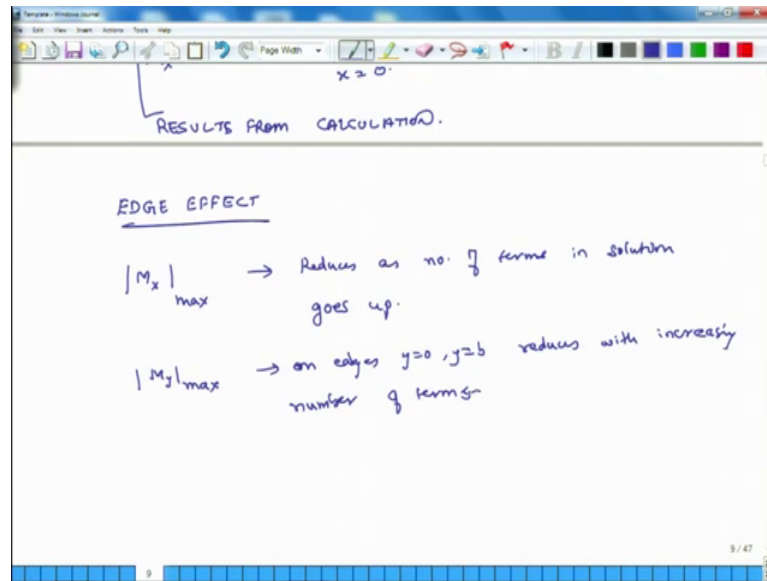 Template - Windows Journal
File Edit View Insert Actions Tools Help
Page Width
B I
x
x = 0.
RESULTS FROM CALCULATION.
EDGE EFFECT
|Mx|max → Reduces as no. of terms in solution
goes up.
|My|max → on edges y=0, y=b reduces with increasing
number of terms
9 / 47
9